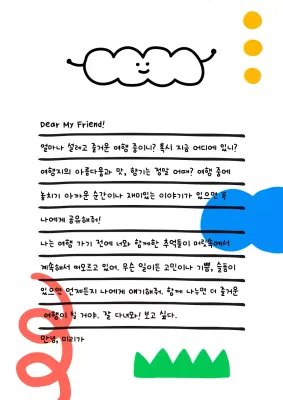 Dear My Friend!
얼마나 설레고 즐거운 여행 중이니? 혹시 지금 어디에 있니?
여행지의 아름다움과 맛, 향기는 정말 어때? 여행 중에
놓치기 아까운 순간이나 재미있는 이야기가 있으면 꼭
나에게 공유해줘!
나는 여행 가기 전에 너와 함께한 추억들이 머릿속에서
계속해서 떠오르고 있어. 무슨 일이든 고민이나 기쁨, 슬픔이
있으면 언제든지 나에게 얘기해줘. 함께 나누면 더 즐거운
여행이 될 거야. 잘 다녀와! 보고 싶다.
안녕, 미리가